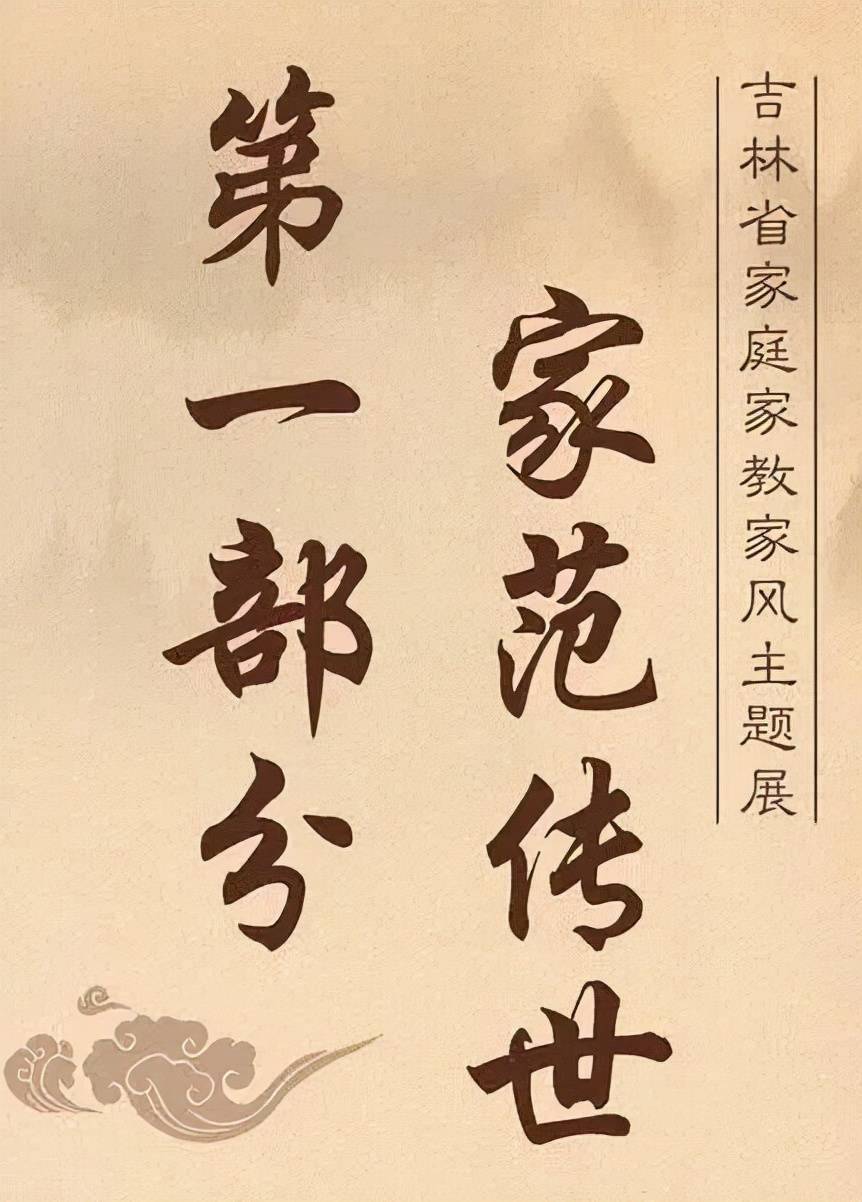 吉林省家庭家教家风主题展
第一部分
家范传世